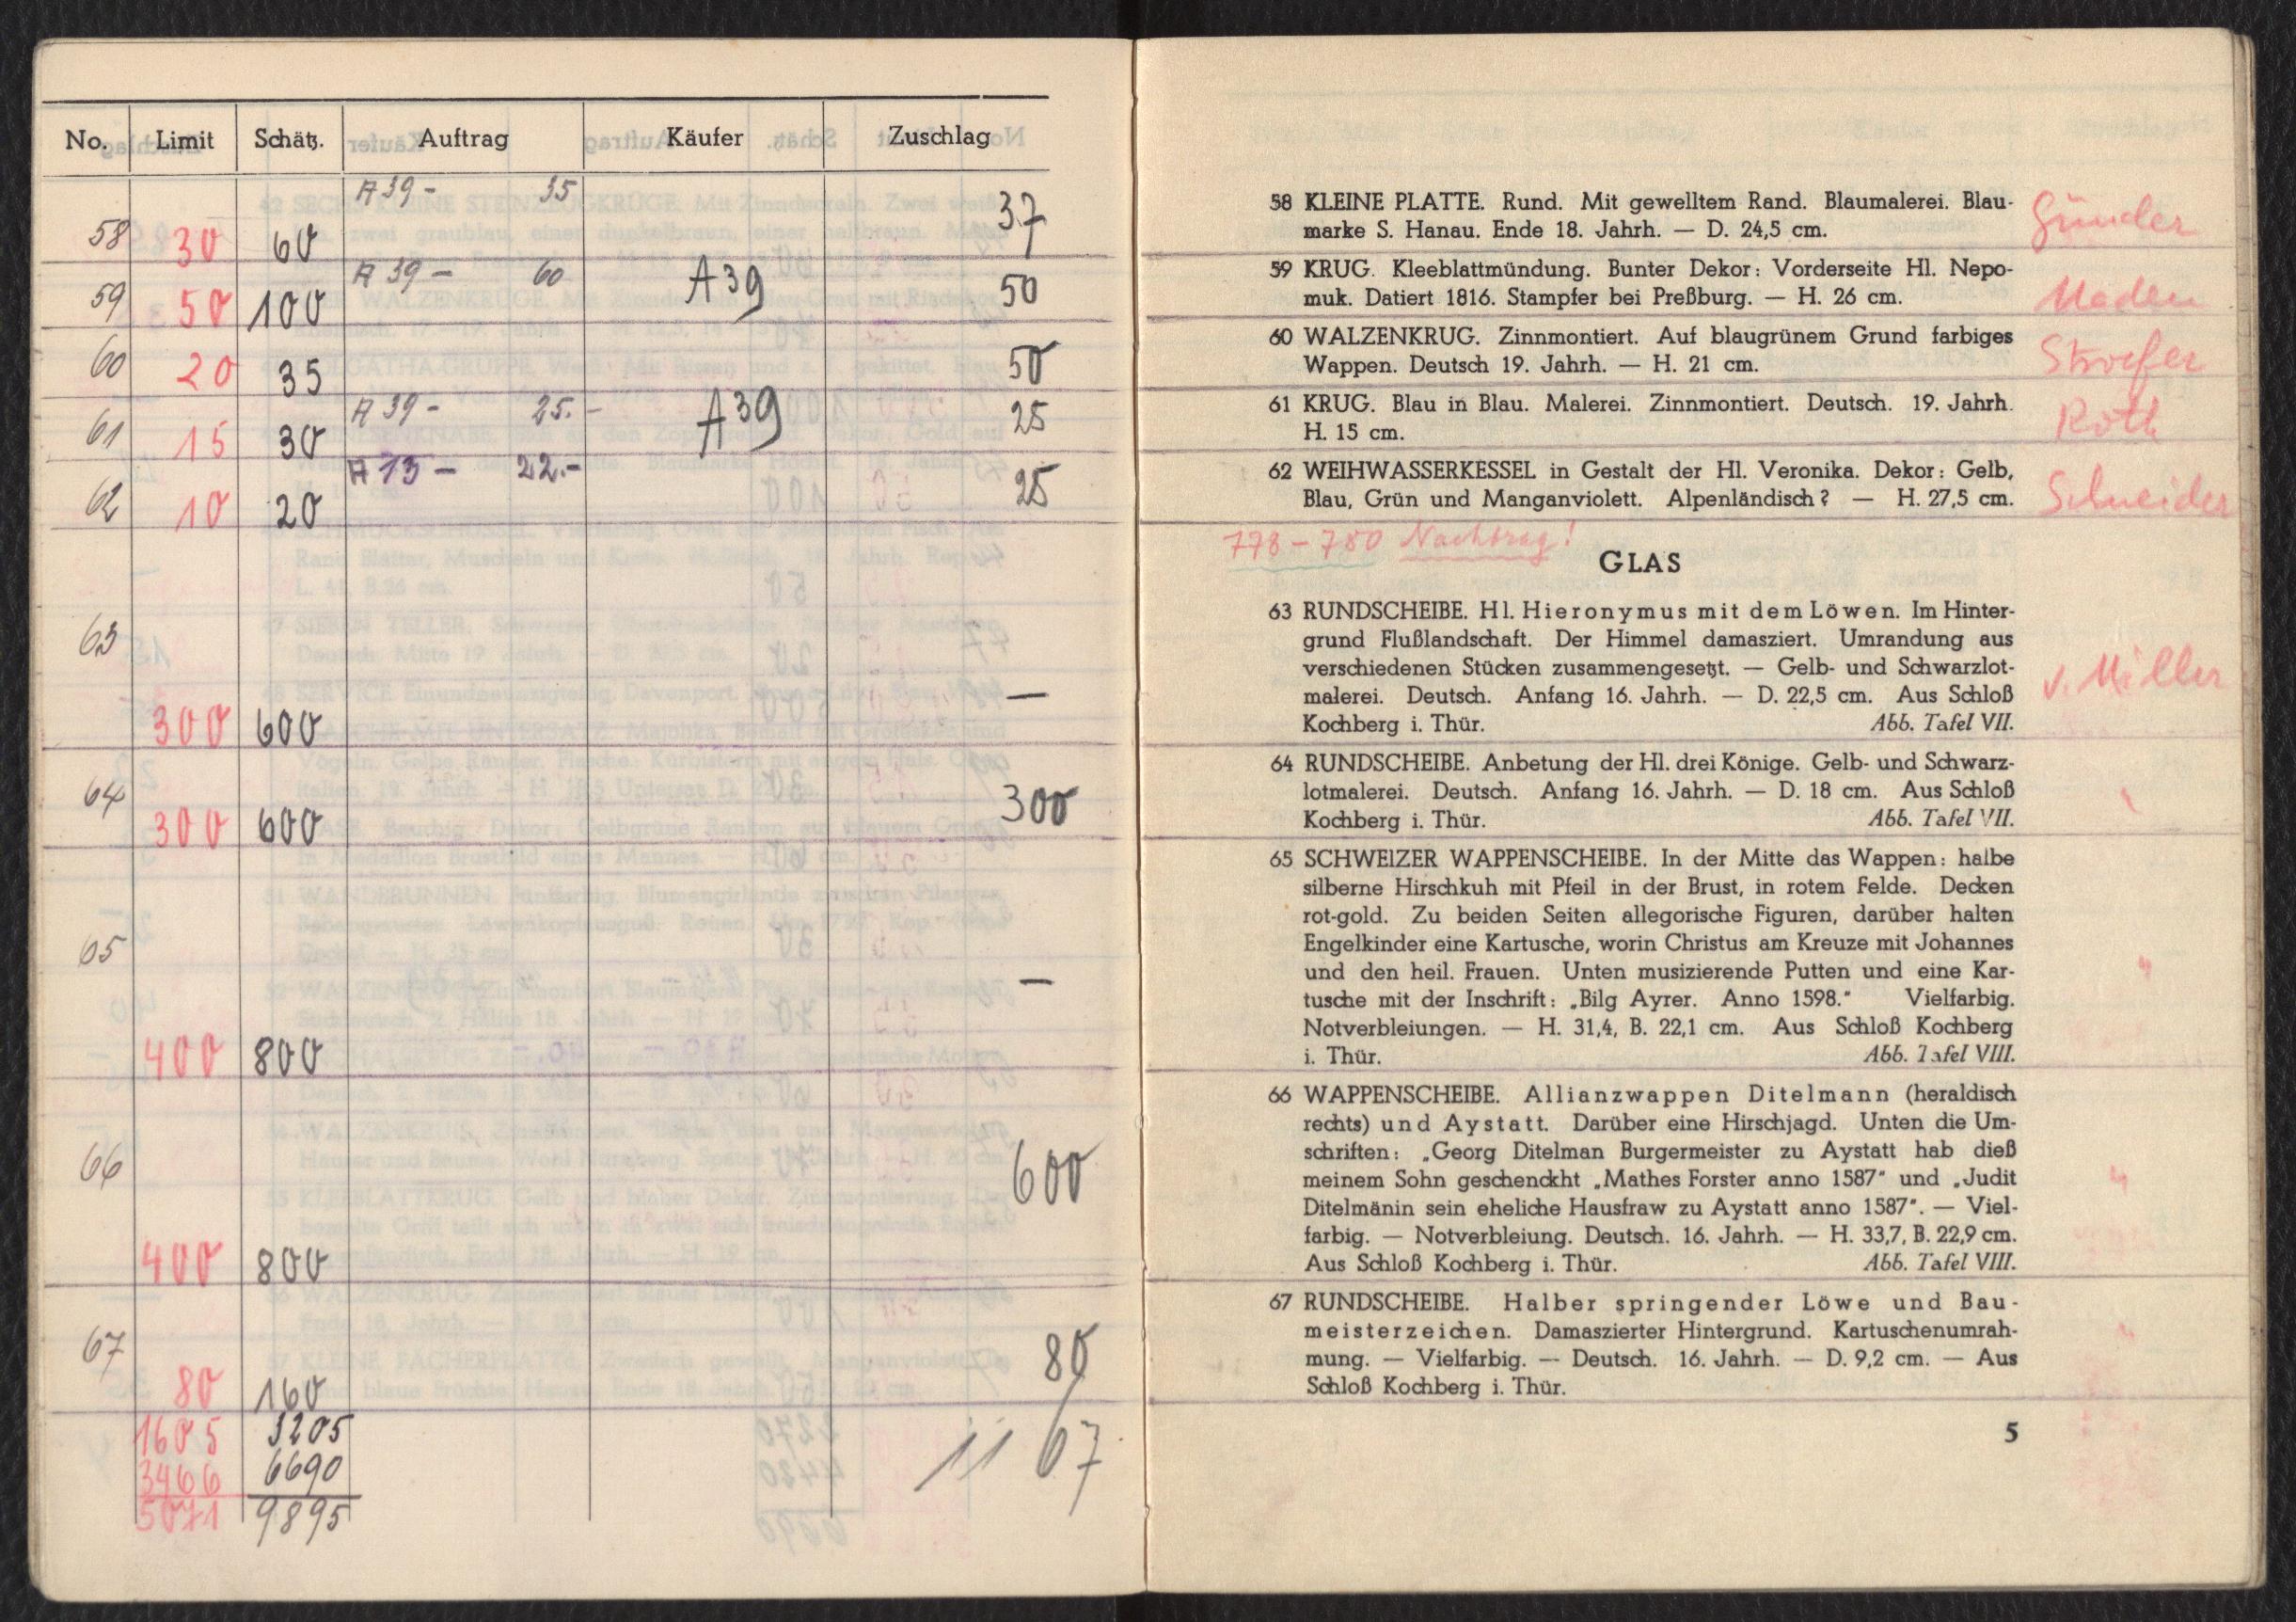 No. Limit Schätz. Auftrag Käufer Zuschlag
A 39 - 35
58 30 60 37
A 39 - 60
59 50 100 A 39 50
60 20 35 50
A 39 - 25.-
61 15 30 A 39 25
A 13 - 22.-
62 10 20 25
63
300 600 —
64
300 600 300
65
—
400 800
66
600
400 800
67
80 160 80
1605 3205
3466 6690 1167
5071 9895
58 KLEINE PLATTE. Rund. Mit gewelltem Rand. Blaumalerei. Blau-
marke S. Hanau. Ende 18. Jahrh. — D. 24,5 cm.
59 KRUG. Kleeblattmündung. Bunter Dekor: Vorderseite Hl. Nepo-
muk. Datiert 1816. Stampfer bei Preßburg. — H. 26 cm.
60 WALZENKRUG. Zinnmontiert. Auf blaugrünem Grund farbiges
Wappen. Deutsch 19. Jahrh. — H. 21 cm.
61 KRUG. Blau in Blau. Malerei. Zinnmontiert. Deutsch. 19. Jahrh. Roth
H. 15 cm.
62 WEIHWASSERKESSEL in Gestalt der Hl. Veronika. Dekor: Gelb,
Blau, Grün und Manganviolett. Alpenländisch? — H. 27,5 cm. Schneider
778 - 780 Nachtrag!
GLAS
63 RUNDSCHEIBE. Hl. Hieronymus mit dem Löwen. Im Hinter-
grund Flußlandschaft. Der Himmel damasziert. Umrandung aus
verschiedenen Stücken zusammengesetzt. — Gelb- und Schwarzlot- v. Miller
malerei. Deutsch. Anfang 16. Jahrh. — D. 22,5 cm. Aus Schloß
Kochberg i. Thür. Abb. Tafel VII.
64 RUNDSCHEIBE. Anbetung der Hl. drei Könige. Gelb- und Schwarz-
lotmalerei. Deutsch. Anfang 16. Jahrh. — D. 18 cm. Aus Schloß
Kochberg i. Thür. Abb. Tafel VII.
65 SCHWEIZER WAPPENSCHEIBE. In der Mitte das Wappen: halbe
silberne Hirschkuh mit Pfeil in der Brust, in rotem Felde. Decken
rot-gold. Zu beiden Seiten allegorische Figuren, darüber halten
Engelkinder eine Kartusche, worin Christus am Kreuze mit Johannes
und den heil. Frauen. Unten musizierende Putten und eine Kar- "
tusche mit der Inschrift: „Bilg Ayrer. Anno 1598." Vielfarbig.
Notverbleiungen. — H. 31,4, B. 22,1 cm. Aus Schloß Kochberg
i. Thür. Abb. Tafel VIII.
66 WAPPENSCHEIBE. Allianzwappen Ditelmann (heraldisch
rechts) und Aystatt. Darüber eine Hirschjagd. Unten die Um-
schriften: „Georg Ditelman Burgermeister zu Aystatt hab dieß
meinem Sohn geschenckht „Mathes Forster anno 1587" und „Judit "
Ditelmänin sein eheliche Hausfraw zu Aystatt anno 1587". — Viel-
farbig. — Notverbleiung. Deutsch. 16. Jahrh. — H. 33,7, B. 22,9 cm.
Aus Schloß Kochberg i. Thür. Abb. Tafel VIII.
67 RUNDSCHEIBE. Halber springender Löwe und Bau-
meisterzeichen. Damaszierter Hintergrund. Kartuschenumrah- "
mung. — Vielfarbig. — Deutsch. 16. Jahrh. — D. 9,2 cm. — Aus
Schloß Kochberg i. Thür.
5